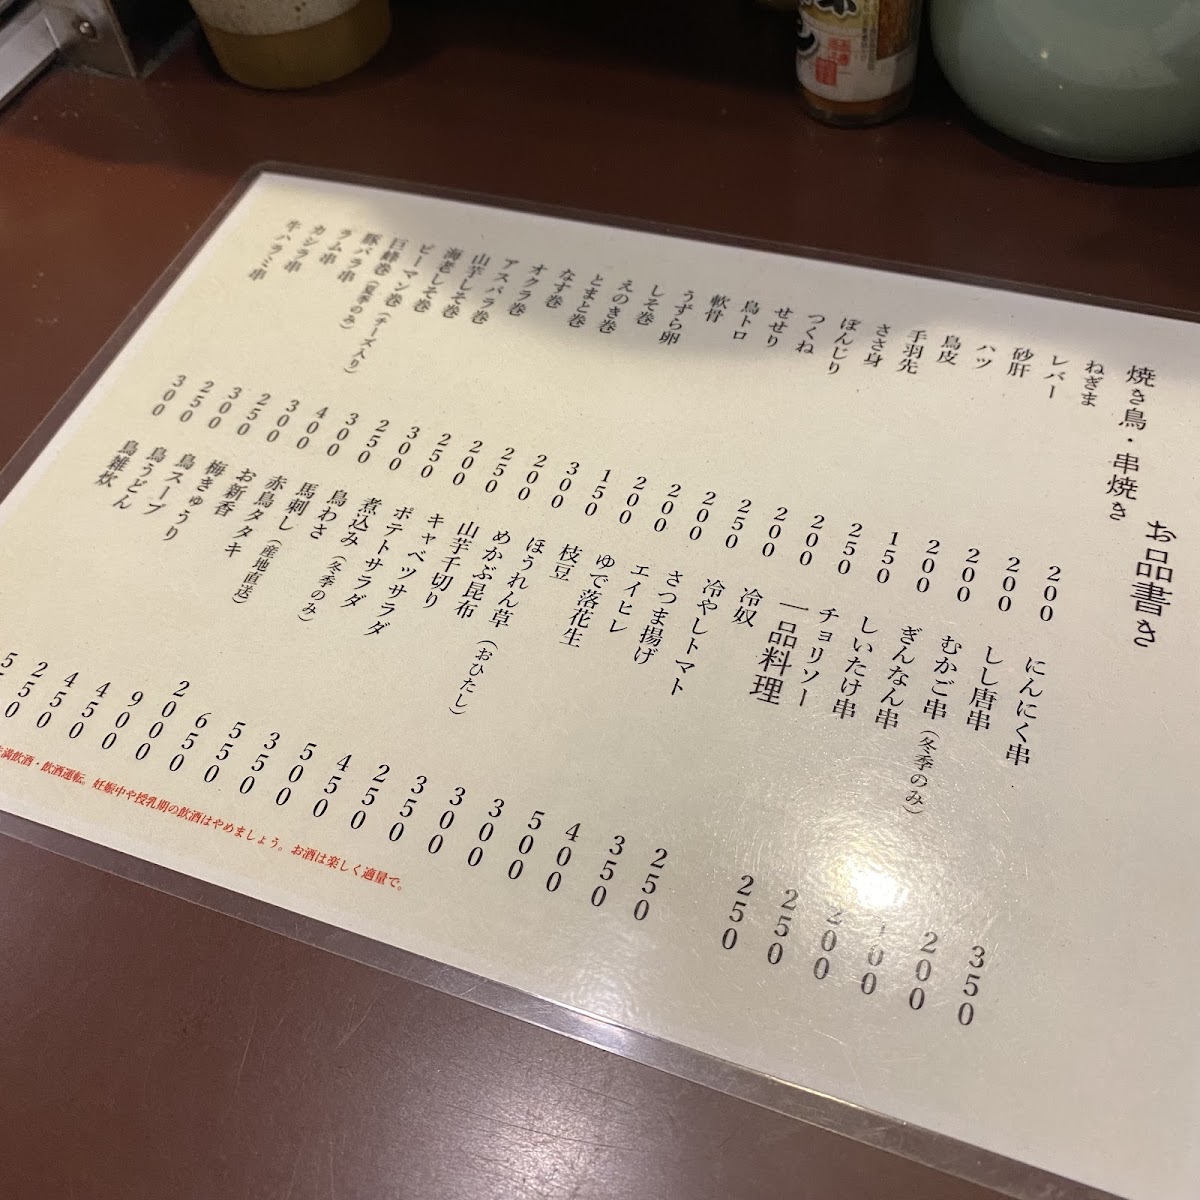 お品書き
焼き鳥・串焼き
ねぎま 200
レバー 200
砂肝 200
ハツ 200
鳥皮 150
手羽先 250
ささ身 200
ぼんじり 200
つくね 250
せせり 200
鳥トロ 200
軟骨 200
うずら卵 150
しそ巻 300
えのき巻 200
とまと巻 250
なす巻 200
オクラ巻 250
アスパラ巻 300
山芋しそ巻 250
海老しそ巻 300
ピーマン巻(チーズ入り) 400
巨蜂巻(夏季のみ) 300
豚バラ串 250
ラム串 300
カシラ串 250
牛ハラミ串 300
にんにく串 350
しし唐串 200
むかご串(冬季のみ)
ぎんなん串 200
しいたけ串 250
チョリソー 250
一品料理
冷奴 250
冷やしトマト 350
さつま揚げ 400
エイヒレ 500
ゆで落花生 300
枝豆 300
ほうれん草(おひたし) 350
めかぶ昆布 250
山芋千切り 450
キャベツサラダ 500
ポテトサラダ 350
煮込み(冬季のみ) 550
鳥わさ 650
馬刺し(産地直送) 2000
赤鳥タタキ 900
お新香 450
梅きゅうり 450
鳥スープ 250
鳥うどん
鳥雑炊
満飲酒・飲酒運転。妊娠中や授乳期の飲酒はやめましょう。お酒は楽しく適量で。